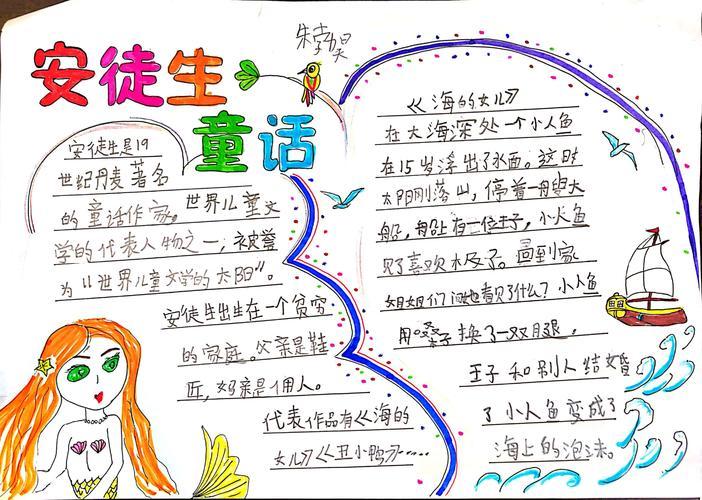 安徒生
童话
安徒生是19
世纪丹麦著名
的童话作家。世界儿童文
学的代表人物之一，被誉
为“世界儿童文学的太阳”。
安徒生出生在一个贫穷
的家庭。父亲是鞋
匠，妈亲是佣人。
代表作品有《海的
女儿》《丑小鸭》……
《海的女儿》
在大海深处一个小人鱼
在15岁浮出了水面。这时
太阳刚落山，停着一艘大
船，船上有一位王子，小人鱼
见了喜欢极了。回到家
姐姐们问她看见了什么？小人鱼
用嗓子换了一双月退。
王子和别人结婚
了小人鱼变成了
海上的泡沫。